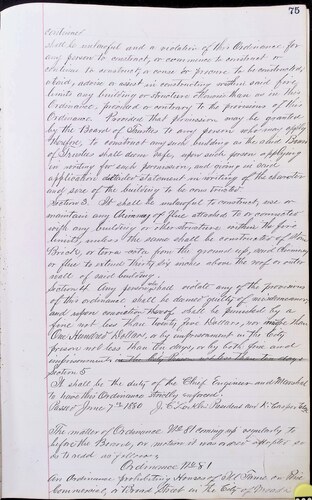 75
continued
shall be unlawful and a violation of this Ordinance for
any person to construct, or commence to construct or
continue to construct, or cause or procure to be constructed,
or aid, advise or assist in constructing within said fire
limits any building or structure otherwise than as in this
Ordinance provided or contrary to the provisions of this
Ordinance. Provided that permission may be granted
by the Board of Trustees to any person who may apply
therefor, to construct any such building as the said Board
of Trustees shall deem safe, upon such person applying
in writing for such permission, and giving in said
application detailed statement in writing of the character
and size of the building to be constructed.
Section 3. It shall be unlawful to construct, use or
maintain any Chimney or flue attached to or connected
with any building or other structure within the fire
limits, unless the same shall be constructed of
Brick, or terra cotta from the ground up, said Chimney
or flue to extend thirty six inches above the roof or outer
wall of said building.
Section 4. Any person who shall violate any of the provisions
of this ordinance shall be deemed guilty of misdemeanor,
and upon conviction thereof shall be punished by a
fine not less than twenty five Dollars, nor more than
One Hundred Dollars or by imprisonment in the City
prison not less than ten days, or by both fine and
imprisonment
Section 5
It shall be the duty of the Chief Engineer and Marshal
to have this Ordinance strictly enforced.
Passed June 7th 1880 J. C. President
The matter of Ordinance No 81 coming up regularly to
before the Board, on motion it was so
as to read as follows:
Ordinance No 81
An Ordinance prohibiting Houses of Ill Fame on
Commercial, or Broad Street in the City of